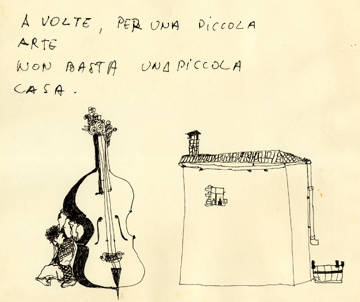 A VOLTE, PER UNA PICCOLA
ARTE
NON BASTA UNA PICCOLA
CASA.